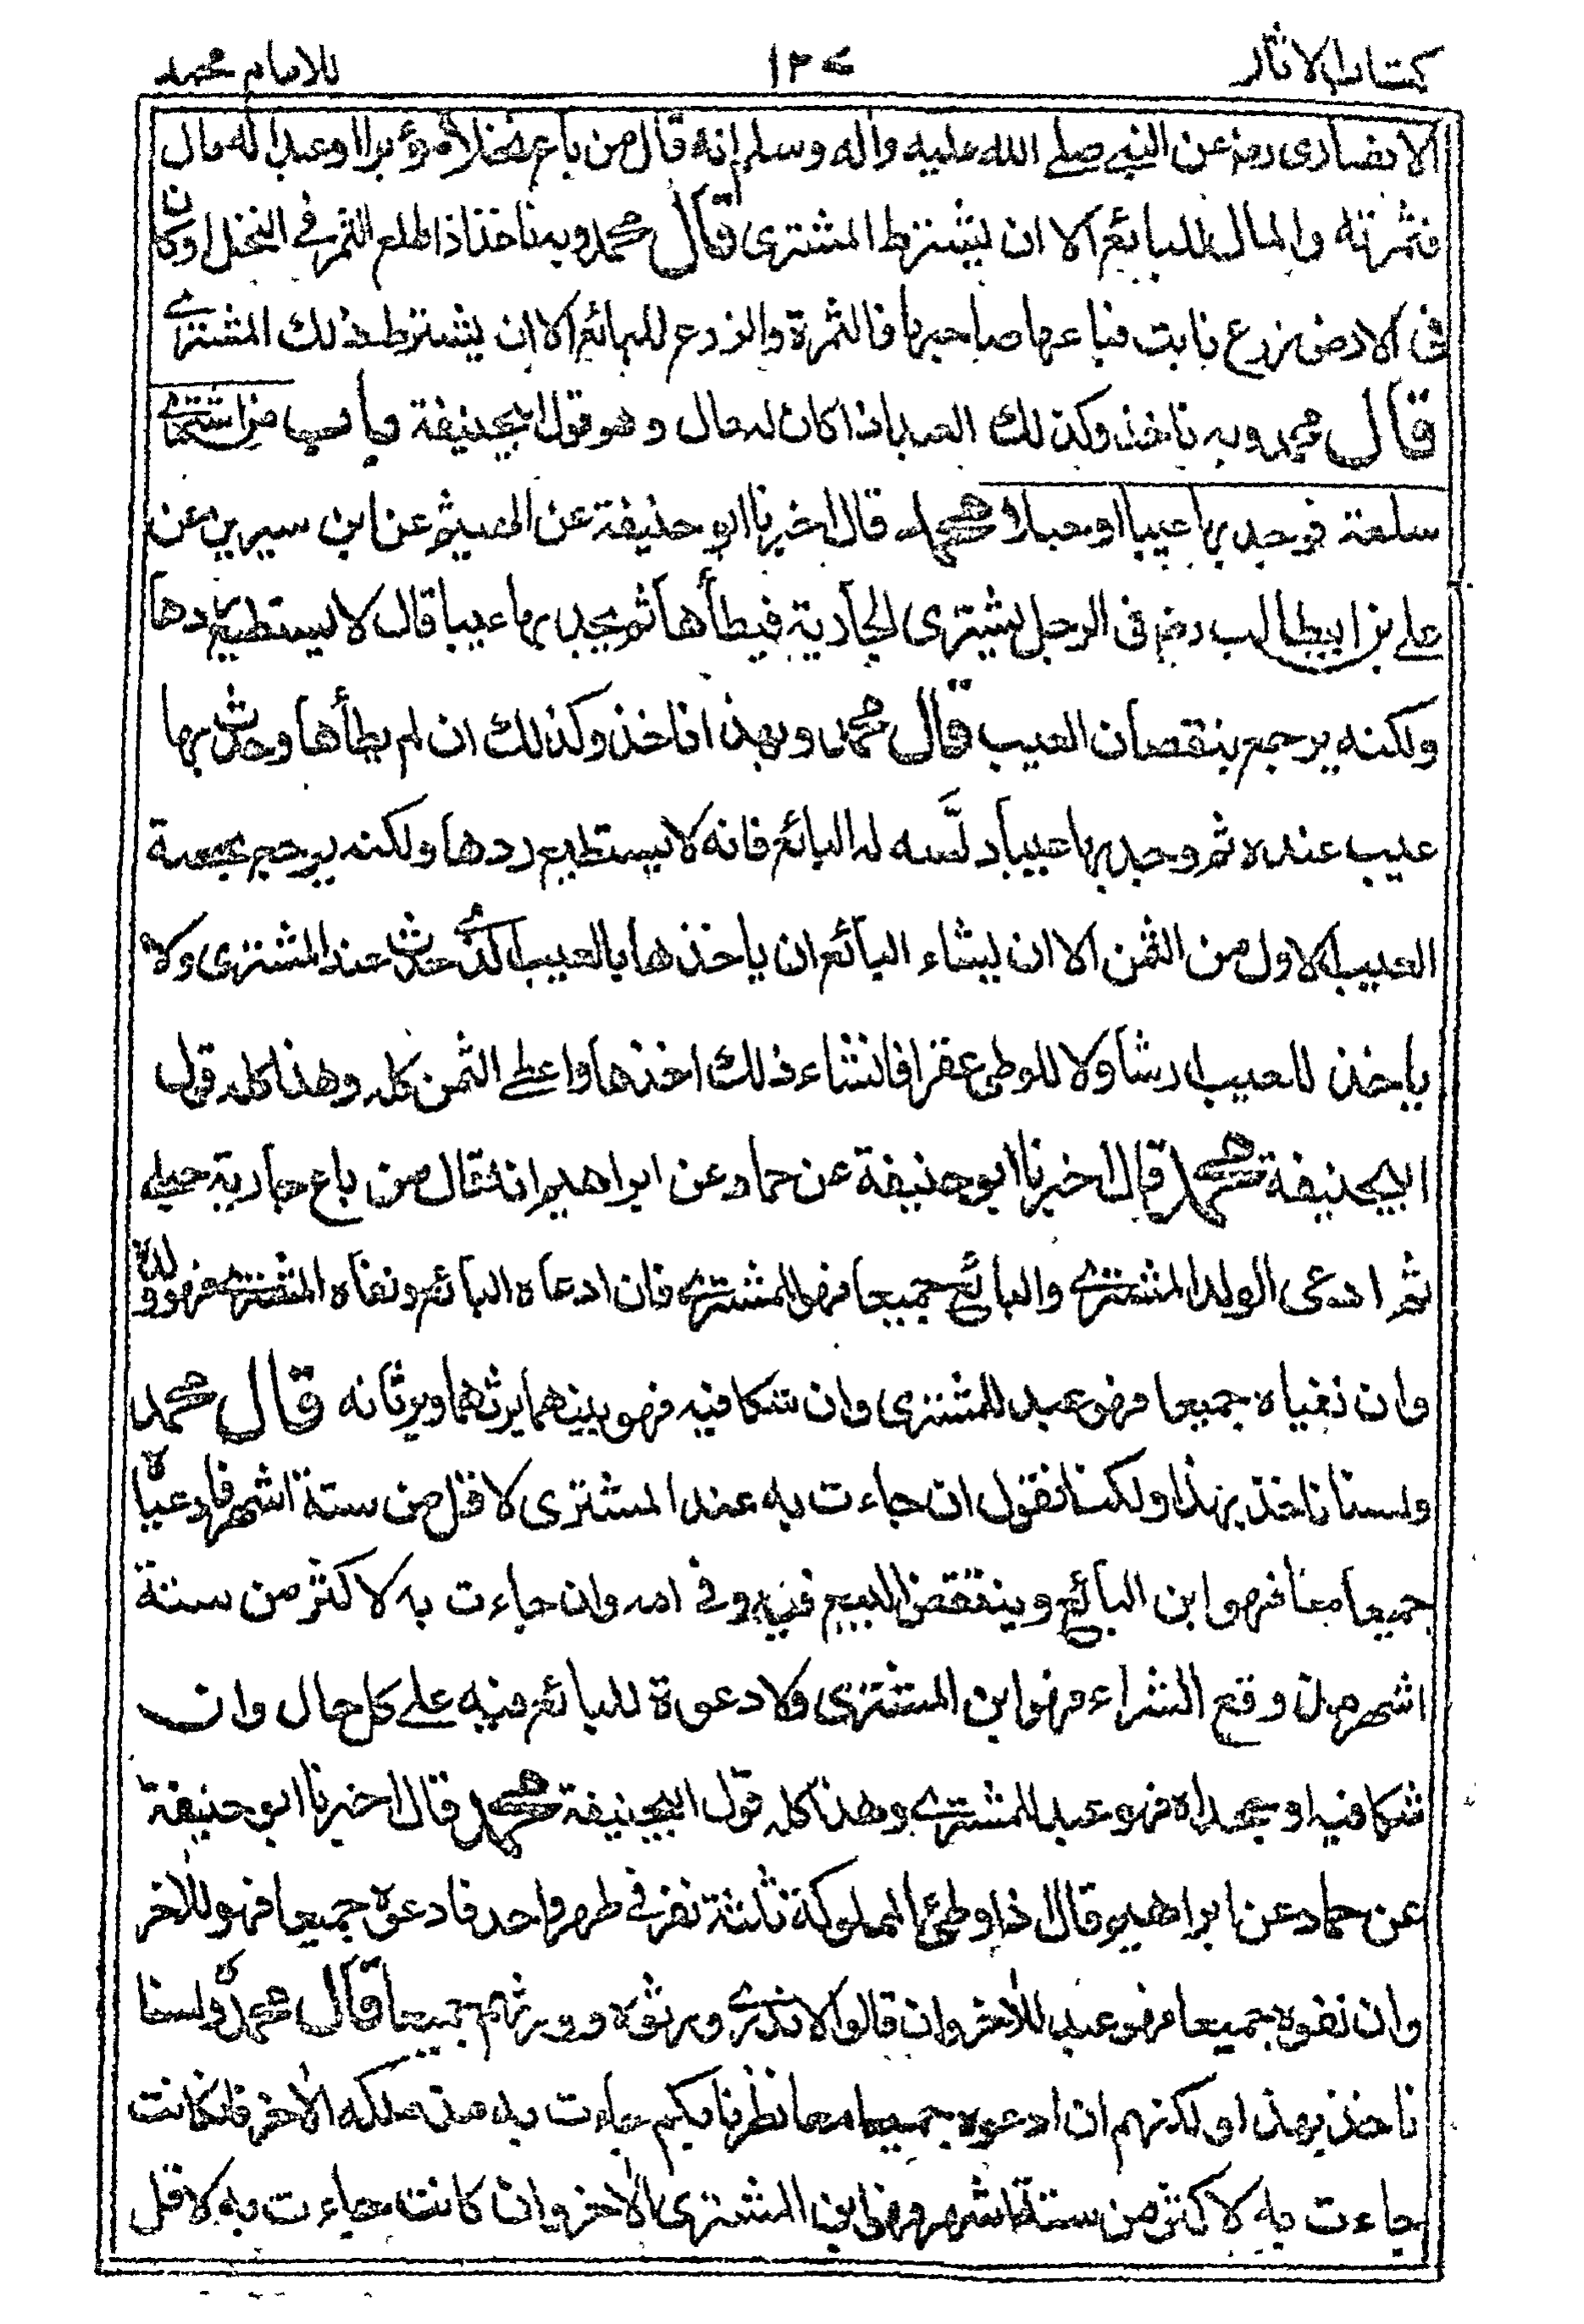 كتاب الاثار ١٢٧ للامام محمد
الانصاری رض عن النبے صلے الله عليه واٰله وسلم انه قال من باع نخلا مؤبرا او عبدا له مال
فثمرته والمال للبائع الا ان يشترط المشتری قال محمد وبه ناخذ اذا طلع الثمر فی النخل او كان
فی الارض زرع نابت فباعها صاحبها فالثمرة والزرع للبائع الا ان يشترط ذلك المشترے
قال محمد وبه ناخذ وكذلك العبد اذا كان له مال وهو قول ابيحنيفة باب من اشترے
سلعة فوجد بها عيبا او حبلا محمد قال اخبرنا ابو حنيفة عن الهيثم عن ابن سيرين عن
علے بن ابيطالب رض فی الرجل يشتری الجارية فيطأها ثم يجد بها عيبا قال لا يستطيع ردها
ولكنه يرجع بنقصان العيب قال محمد وبهذا ناخذ وكذلك ان لم يطأها وحدث بها
عيب عنده ثم وجد بها عيبا دلَّسه له البائع فانه لا يستطيع ردها ولكنه يرجع بحصة
العيب الاول من الثمن الا ان يشاء البائع ان ياخذها بالعيب الذے حدث عند المشتری ولا
ياخذ للعيب ارشا ولا للوطی عقرا فان شاء ذلك اخذها واعطے الثمن كله وهذا كله قول
ابيحنيفة محمد قال اخبرنا ابو حنيفة عن حماد عن ابراهيم انه قال من باع جارية حبلے
ثم ادعی الولد المشترے والبائع جميعا فهو للمشترے فان ادعاه البائع ونفاه المشترے فهو ولده
وان نفياه جميعا فهو عبد للمشتری وان شكا فيه فهو بينهما يرثهما ويرثانه قال محمد
ولسنا ناخذ بهذا ولكنا نقول ان جاءت به عند المشتری لاقل من ستة اشهر فادعياه
جميعا معا فهو ابن البائع وينتقض البيع فيه وفے امه وان جاءت به لاكثر من ستة
اشهر من وقع الشراء فهو ابن المشتری ولا دعوة للبائع فيه علے كل حال وان
شكا فيه او جحداه فهو عبد للمشترے وهذا كله قول ابيحنيفة محمد قال اخبرنا ابو حنيفة
عن حماد عن ابراهيم قال اذا وطئ المملوكة ثلثة نفر فی طهر واحد فادعوه جميعا فهو للاٰخر
وان نفوه جميعا فهو عبد للاٰخر وان قالوا لا ندرے ورثوه وورثهم جميعا قال محمد ولسنا
ناخذ بهذا ولكنهم ان ادعوه جميعا معا نظرنا بكم جاءت به مذ ملكه الاٰخر فان كانت
جاءت به لاكثر من ستة اشهر فهو ابن المشتری الاٰخر وان كانت جاءت به لاقل